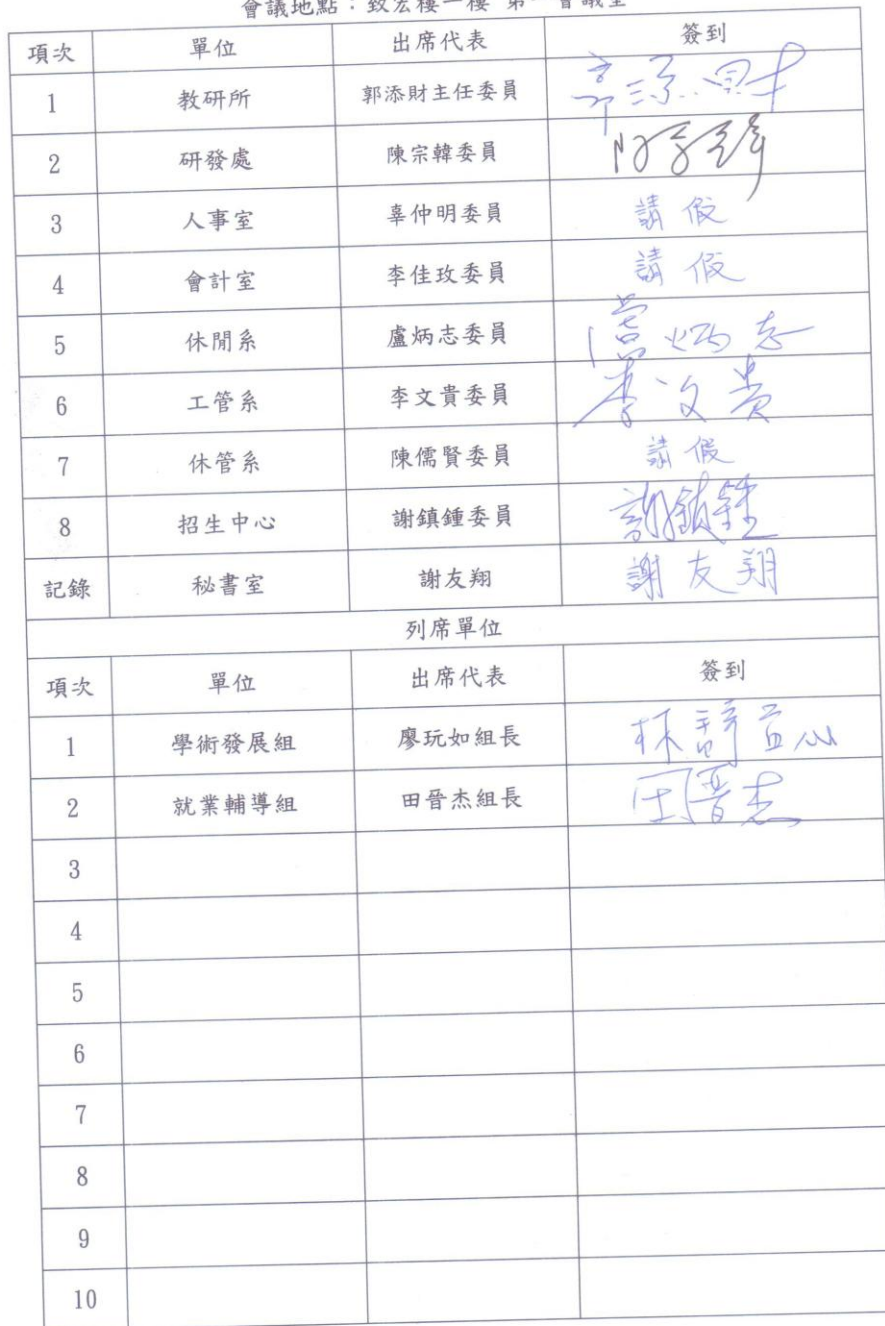 會議地點：致宏樓一樓 第一會議室
項次 單位 出席代表 簽到
1 教研所 郭添財主任委員 郭添財
2 研發處 陳宗韓委員 陳宗韓
3 人事室 辜仲明委員 請假
4 會計室 李佳玫委員 請假
5 休閒系 盧炳志委員 盧炳志
6 工管系 李文貴委員 李文貴
7 休管系 陳儒賢委員 請假
8 招生中心 謝鎮鍾委員 謝鎮鍾
記錄 秘書室 謝友翔 謝友翔
列席單位
項次 單位 出席代表 簽到
1 學術發展組 廖玩如組長
2 就業輔導組 田晉杰組長 田晉杰
3
4
5
6
7
8
9
10